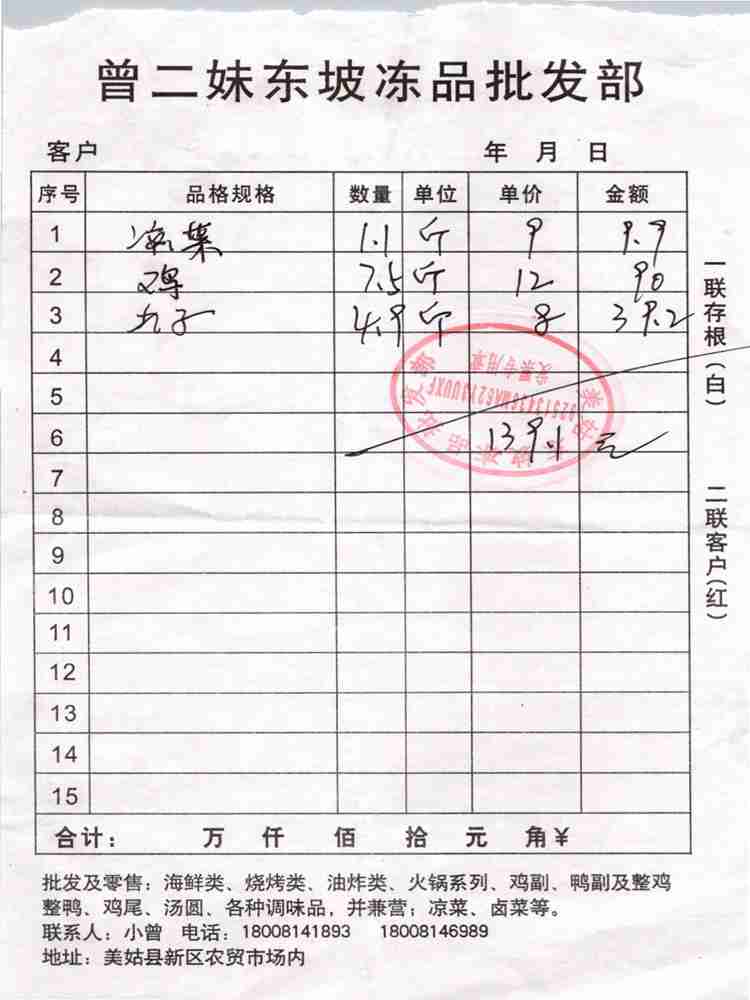 曾二妹东坡冻品批发部
客户 年 月 日
序号 品格规格 数量 单位 单价 金额
1 凉菜 1.1 斤 9 9.9
2 鸡 7.5 斤 12 90
3 丸子 4.9 斤 8 39.2
4
5
6 139.1 元
7
8
9
10
11
12
13
14
15
合计： 万 仟 佰 拾 元 角¥
一联存根(白)
二联客户(红)
发票专用章
批发及零售：海鲜类、烧烤类、油炸类、火锅系列、鸡副、鸭副及整鸡
整鸭、鸡尾、汤圆、各种调味品，并兼营：凉菜、卤菜等。
联系人：小曾 电话：18008141893 18008146989
地址：美姑县新区农贸市场内